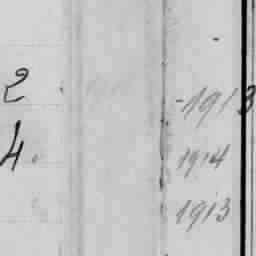 2 -1913
4. 1914
1913